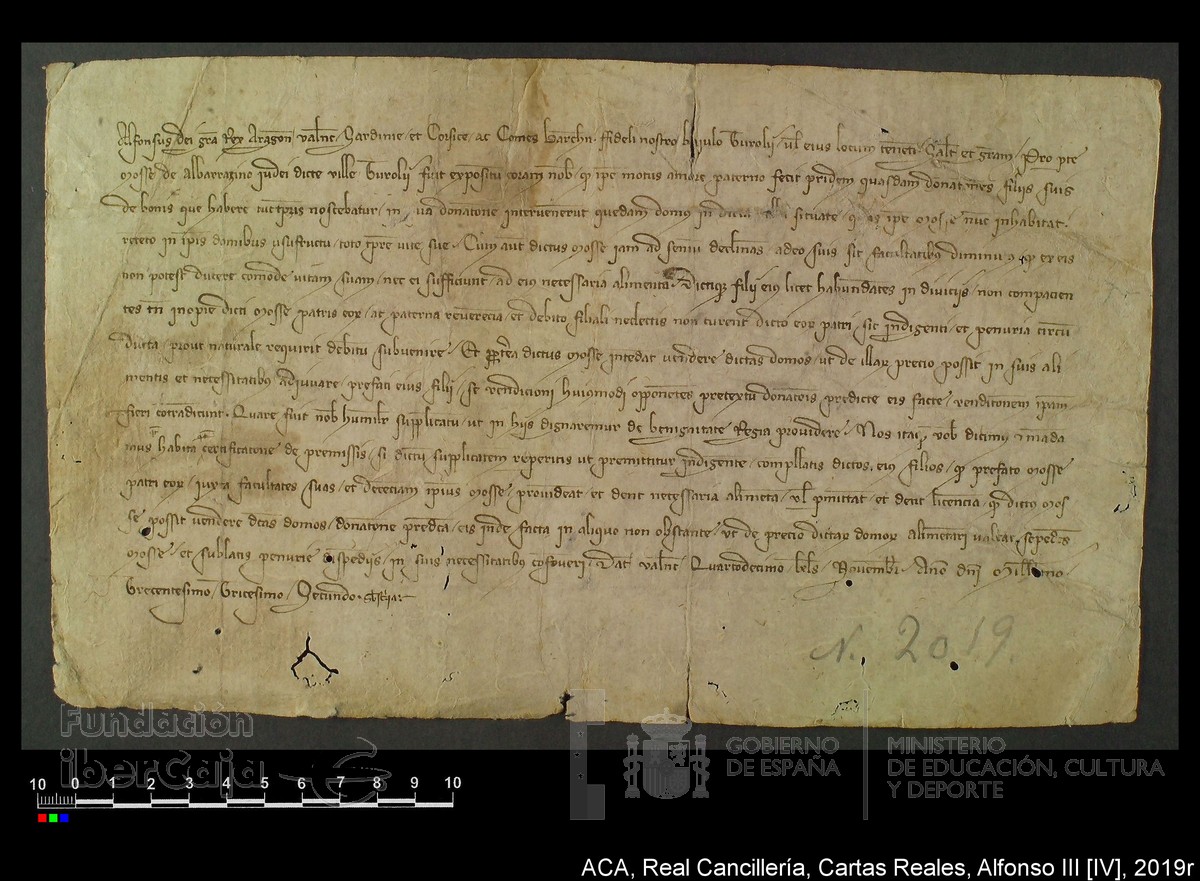 Alfonsus dei gra Rex Aragon valenc Sardinie et Corsice ac Comes Barchn. ffideli nostro baiulo Turolii vel eius locum tenenti. Salt et gram. Pro pte
Mosse de Albarrazino iudei dicte ville Turolii fuit expositu coram nob qd ipe motus amore paterno fecit pridem quasdam donationes filiis suis
de bonis que habere tunc temporis noscebatur in qua donatione intervenerut quedam domus in dicta villa situate quas ipe Mosse nuc inhabitat.
retento in ipis domibus usufructu toto tpre vite sue. Cum aut dictus Mosse iam ad seniu declinas adeo suis sit facultatibus diminutus qd ex eis
non potest ducere comode vitam suam nec ei sufficiunt ad eius necessaria alimenta. Dictique filii eius licet habundates in diviciis non compacien
tes tn inopie dicti Mosse patris eor ac paterna reverecia et debito filiali neclectis non curent dicto eor patri sic indigenti et penuria circu
ducta prout naturale requirit debitu subvenire. Et propterea dictus Mosse intedat vendere dictas domos ut de illar precio possit in suis ali
mentis et necessitatibus adiuvare prefati eius filii se vendicioni huiusmodi opponetes pretextu donatois predicte eis facte venditonem ipam
fieri cotradicunt. Quare fuit nob humilr supplicatu ut in hiis dignaremur de benignitate Regia providere. Nos itaq vob dicimus et mada
mus habita certificatione de premissis si dictu supplicatem reperitis ut premittitur indigente compellatis dictos eius filios qd prefato Mosse
patri eor iuxta facultates suas et dececiam ipius Mosse provideat et dent necessaria alimeta vel pmittat et dent licencia qd dictus Mos
se possit vendere dcas domos donatione predca eis inde facta in aliquo non obstante ut de precio dictar domor alimetari valeat sepedcs
Mosse et sublatis penurie dispediis in suis necessitatibus cofoveri. Dat valenc Quartodecimo kls Novembr. Ano dni Millesimo
Trecentesimo Tricesimo Secundo.
N. 2019.
Fundación
iberCaja
10 0 1 2 3 4 5 6 7 8 9 10
GOBIERNO
DE ESPAÑA
MINISTERIO
DE EDUCACIÓN, CULTURA
Y DEPORTE
ACA, Real Cancillería, Cartas Reales, Alfonso III [IV], 2019r